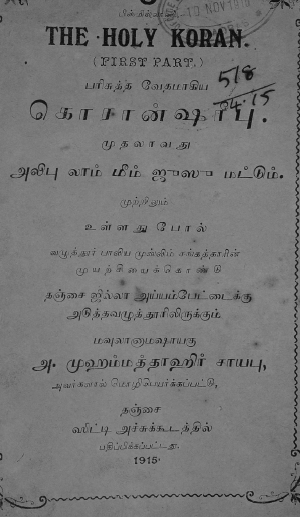 பிஸ்மில்லாஹி
10 NOV 1915
THE HOLY KORAN.
(FIRST PART.)
578
பரிசுத்த வேதமாகிய
04.15
கொரான்ஷரீபு.
முதலாவது
அலிபு லாம் மீம் ஜுஸுமட்டும்.
முற்றிலும்
உள்ளது போல்
வழுத்தூர் பாலிய முஸ்லிம் சங்கத்தாரின்
முயற்சியைக்கொண்டு
தஞ்சை ஜில்லா அய்யம்பேட்டைக்கு
அடுத்தவழுத்தூரிலிருக்கும்
மவுலானாமஷாயகு
அ. முஹம்மத்தாஹிர் சாயபு,
அவர்களால் மொழிபெயர்க்கப்பட்டு,
தஞ்சை
ஸிட்டி அச்சுக்கூடத்தில்
பதிப்பிக்கப்பட்டது.
1915